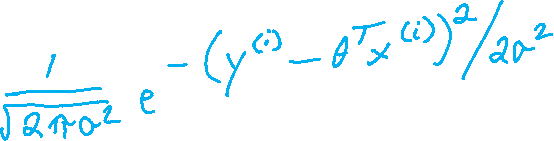 \frac{1}{\sqrt{2\pi\sigma^2}} e^{-(y^{(i)} - \theta^T x^{(i)})^2 / 2\sigma^2}